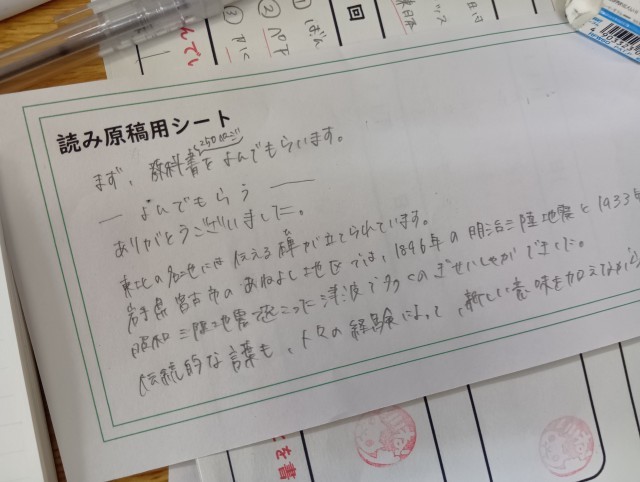 読み原稿用シート
まず、教科書をよんでもらいます。
250ページ
― よんでもらう ―
ありがとうございました。
東北の各地には伝える碑が立てられています。
ひ
岩手県宮古市のあねよし地区では、1896年の明治三陸地震と1933年
昭和三陸地震で起こった津波で多くのぎせいしゃがでました。
伝統的な言葉も、人々の経験によって、新しい意味を加えながら
回